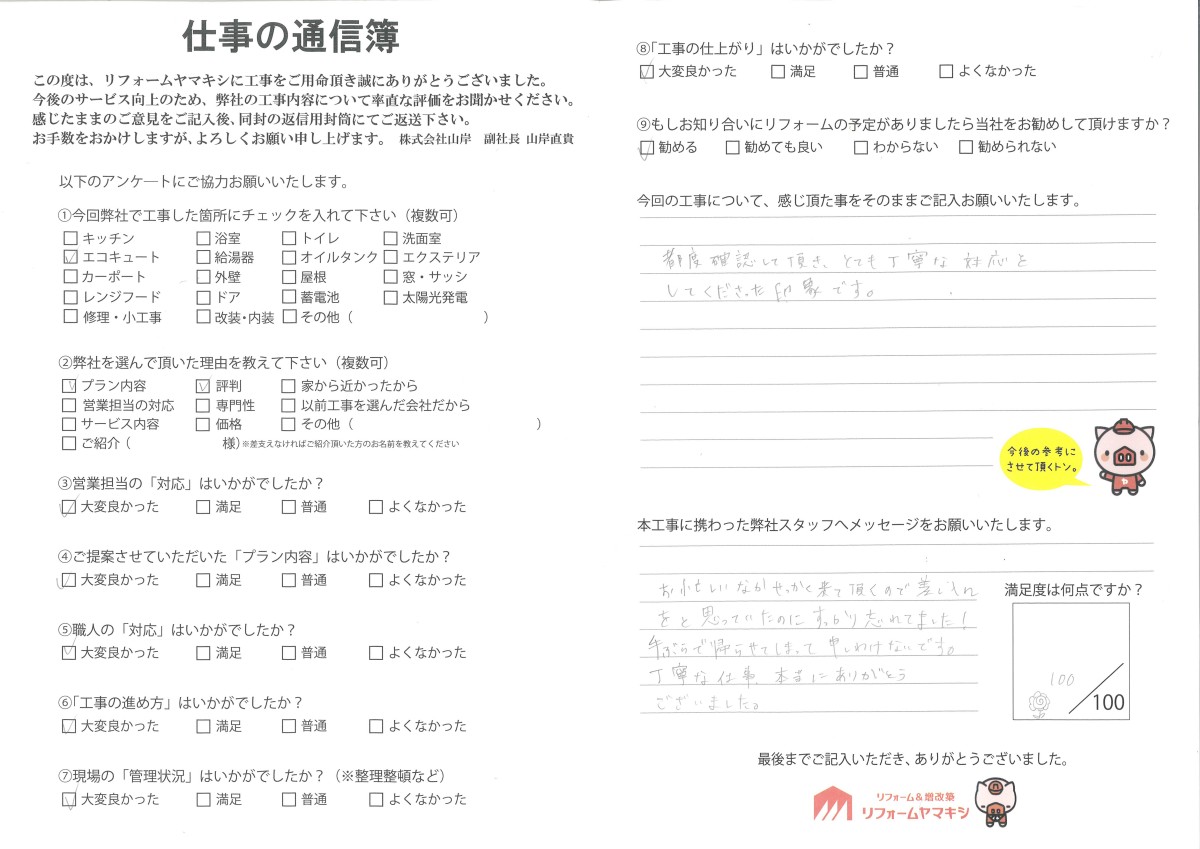 仕事の通信簿
この度は、リフォームヤマキシに工事をご用命頂き誠にありがとうございました。
今後のサービス向上のため、弊社の工事内容について率直な評価をお聞かせください。
感じたままのご意見をご記入後、同封の返信用封筒にてご返送下さい。
お手数をおかけしますが、よろしくお願い申し上げます。 株式会社山岸 副社長 山岸直貴
以下のアンケートにご協力お願いいたします。
①今回弊社で工事した箇所にチェックを入れて下さい（複数可）
□キッチン □浴室 □トイレ □洗面室
☑エコキュート □給湯器 □オイルタンク □エクステリア
□カーポート □外壁 □屋根 □窓・サッシ
□レンジフード □ドア □蓄電池 □太陽光発電
□修理・小工事 □改装・内装 □その他（ ）
②弊社を選んで頂いた理由を教えて下さい（複数可）
☑プラン内容 ☑評判 □家から近かったから
□営業担当の対応 □専門性 □以前工事を選んだ会社だから
□サービス内容 □価格 □その他（ ）
□ご紹介（ 様）※差支えなければご紹介頂いた方のお名前を教えてください
③営業担当の「対応」はいかがでしたか？
☑大変良かった □満足 □普通 □よくなかった
④ご提案させていただいた「プラン内容」はいかがでしたか？
☑大変良かった □満足 □普通 □よくなかった
⑤職人の「対応」はいかがでしたか？
☑大変良かった □満足 □普通 □よくなかった
⑥「工事の進め方」はいかがでしたか？
☑大変良かった □満足 □普通 □よくなかった
⑦現場の「管理状況」はいかがでしたか？（※整理整頓など）
☑大変良かった □満足 □普通 □よくなかった
⑧「工事の仕上がり」はいかがでしたか？
☑大変良かった □満足 □普通 □よくなかった
⑨もしお知り合いにリフォームの予定がありましたら当社をお勧めして頂けますか？
☑勧める □勧めても良い □わからない □勧められない
今回の工事について、感じ頂た事をそのままご記入お願いいたします。
都度確認して頂き、とても丁寧な対応を
してくださった印象です。
今後の参考に
させて頂くトン。
本工事に携わった弊社スタッフへメッセージをお願いいたします。
お忙しいなかせっかく来て頂くので差し入れ
をと思っていたのにすっかり忘れてました！
手ぶらで帰らせてしまって申しわけないです。
丁寧な仕事、本当にありがとう
ございました。
満足度は何点ですか？
100
/100
最後までご記入いただき、ありがとうございました。
リフォーム&増改築
リフォームヤマキシ